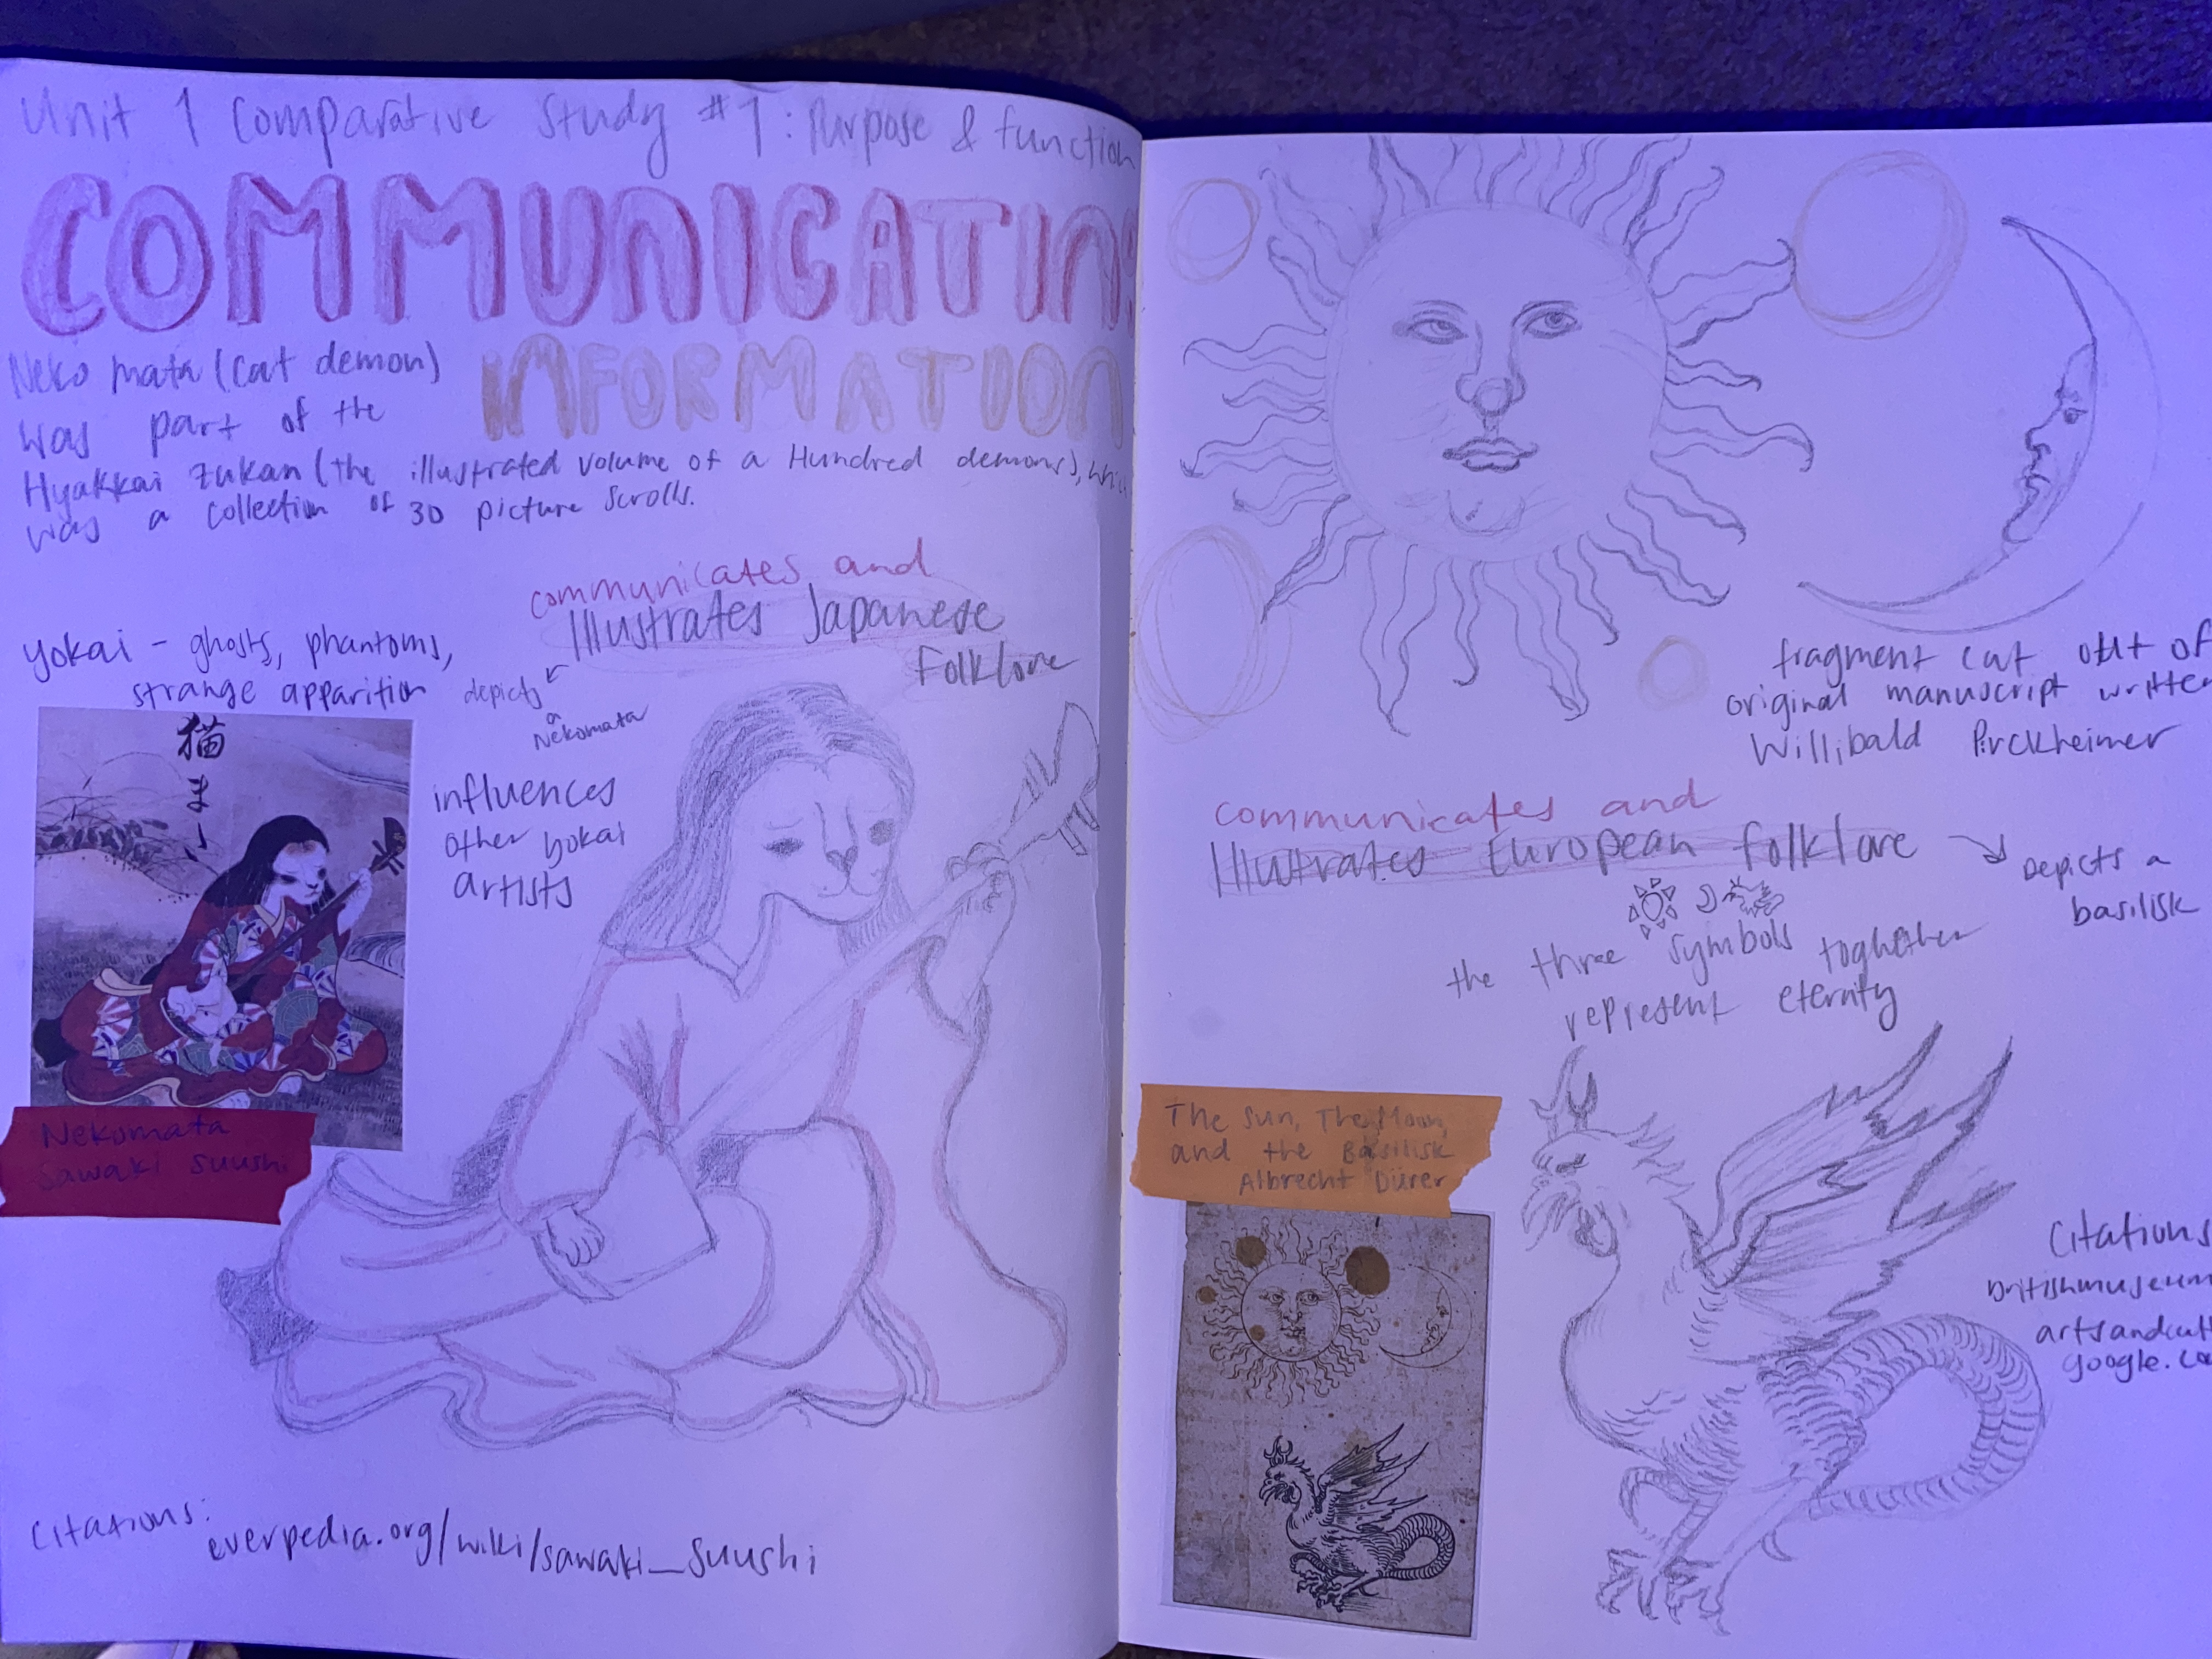 Unit 1 Comparative Study #1: Purpose & function
COMMUNICATING
INFORMATION
Neko mata (cat demon)
was part of the
Hyakkai Zukan (the illustrated volume of a Hundred demons),
was a collection of 30 picture scrolls.
communicates and
Illustrates Japanese
Folklore
yokai - ghosts, phantoms,
strange apparition
depicts
a
Nekomata
猫
ま
influences
other yokai
artists
Nekomata
Sawaki Suushi
Citations:
everpedia.org/wiki/sawaki_suushi
fragment cut out of
original manuscript written
Willibald Pirckheimer
communicates and
Illustrates European folklore
Depicts a
basilisk
the three symbols toghether
represent eternity
The Sun, The Moon,
and the Basilisk
Albrecht Dürer
Citations
britishmuseum
artsandcult
google.co